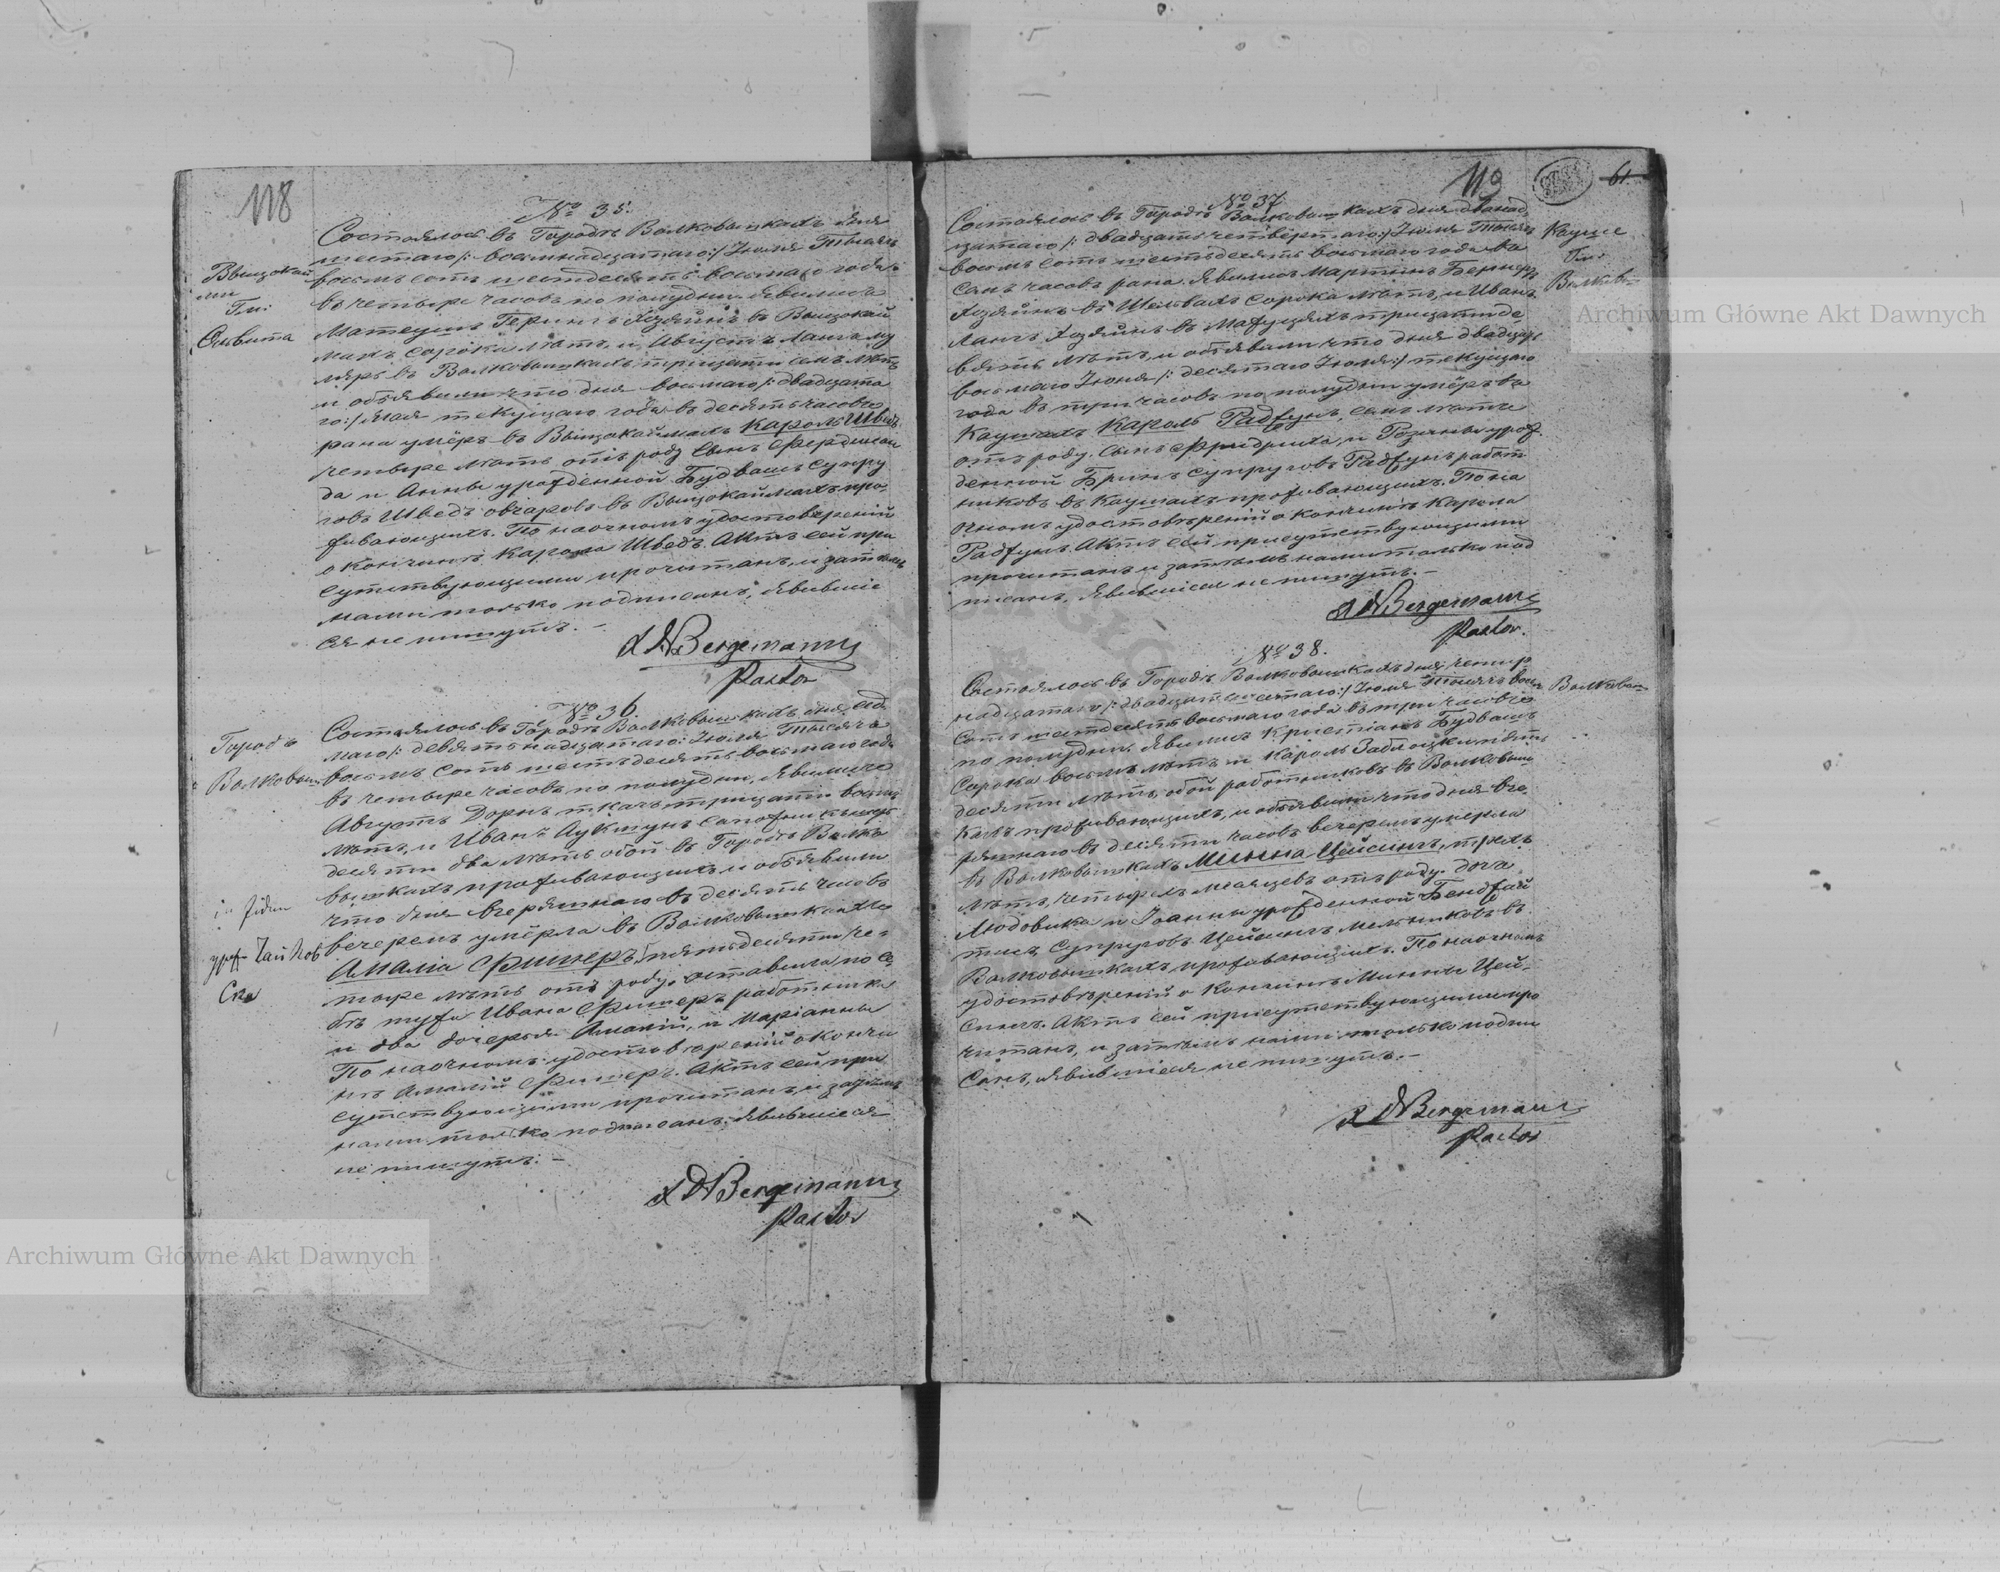 118
№ 35.
Состоялось въ Городѣ Волковышкахъ дня
шестаго /: восьмнадцатаго :/ Іюля Тысяча
восьмъ сотъ шестдесятъ восьмаго года
въ четыре часовъ по полудни. Явились
Матеушъ Герингъ хозяинъ въ Вышокай
махъ сорока лѣтъ, и Августъ Лангъ му
ляръ въ Волковышкахъ тридцати семъ лѣтъ
и объявили что дня восьмаго /: двадцата
го :/ Мая текущаго года въ десять часовъ
рана умёръ въ Вышокаймахъ Кароль Шведъ
четыре лѣтъ отъ роду сынъ Фердинан
да и Анны урожденной Будвашъ супру
говъ Шведъ овчаровъ въ Вышокаймахъ про
живающихъ. По наочномъ удостовѣреній
о кончинѣ Кароля Шведъ. Актъ сей при
сутствующими прочитанъ, и затѣмъ
нами только подписанъ, явившіе
ся не пишутъ. –
A W Bergemann
Pastor
Вышокай
мы
Гм:
Ольвита
№ 36
Состоялось въ Городѣ Волковышкахъ дня сед
маго /: девятьнадцатаго :/ Іюля Тысяча
восьмъ сотъ шестьдесятъ восьмаго года
въ четыре часовъ по полудни. Явились
Августъ Дорнъ ткачъ тридцати восьмъ
лѣтъ, и Иванъ Аукштунъ сапожникъ
десяти два лѣтъ обой въ Городѣ Волко
вышкахъ проживающихъ и объявили
что дня вчеряшнаго въ десять часовъ
вечеремъ умёрла въ Волковышкахъ
Амалія Фишеръ, пятьдесяти че=
тыре лѣтъ отъ роду, оставила по се
бѣ мужа Ивана Фишеръ работника
и два дочерья Амалій, и Маріанны
По наочномъ удостовѣреній о кончи
нѣ Амалій Фишеръ. Актъ сей при
сутствующими прочитанъ, и затѣмъ
нами только подписанъ. Явившіеся
не пишутъ. –
A W Bergemann
Pastor
Городъ
Волковыш
урж. Чайков
Ска
119
61.
№ 37
Состоялось въ Городѣ Волковышкахъ дня двѣнад
цатаго /: двадцать четвёртаго :/ Іюля Тысяча
восьмъ сотъ шестьдесятъ восьмаго года въ
семъ часовъ рана. Явились Мартинъ Бернеръ
хозяинъ въ Шельвахъ сорока лѣтъ, и Иванъ
Лангъ хозяинъ въ Мафуцяхъ тридцати де
вять лѣтъ, и объявили что дня двадцать
восьмаго Іюня /: десятаго Іюля :/ текущаго
года въ три часовъ по полудни умёръ въ
Каушахъ Кароль Радзунъ, семъ лѣтъ
отъ роду. Сынъ Фридриха, и Розины урож
денной Бринъ супруговъ Радзунъ работ
никовъ въ Каушахъ проживающихъ. По на
очномъ удостовѣреній о кончинѣ Кароля
Радзунъ. Актъ сей присутствующими
прочитанъ и затѣмъ нами только под
писанъ, явившіеся не пишутъ. –
A W Bergemann
Pastor.
Кауше
Гм:
Волковы
№ 38.
Состоялось въ Городѣ Волковышкахъ дня четыр
надцатаго /: двадцать шестаго :/ Іюля Тысяча восьмъ
сотъ шестдесятъ восьмаго года въ три часовъ
по полудни. Явились Кристіанъ Будвашъ
сорока восьмъ лѣтъ и Кароль Заблоцки пять
десяти лѣтъ, обой работниковъ въ Волковыш
кахъ проживающихъ, и объявили что дня вче
ряшнаго въ десяти часовъ вечеремъ умерла
въ Волковышкахъ Минна Цейсингъ, трехъ
лѣтъ, четырехъ мѣсяцевъ отъ роду. доча
Людовика и Іоанны урожденной Бендзай
тисъ Супруговъ Цейсингъ мельниковъ въ
Волковышкахъ проживающихъ. По наочномъ
удостовѣреній о кончинѣ Минны Цей=
сингъ. Актъ сей присутствующими про
читанъ, и затѣмъ нами только подпи
санъ, явившіеся не пишутъ. –
A W Bergemann
Pastor
Волковыш
Archiwum Główne Akt Dawnych
Archiwum Główne Akt Dawnych